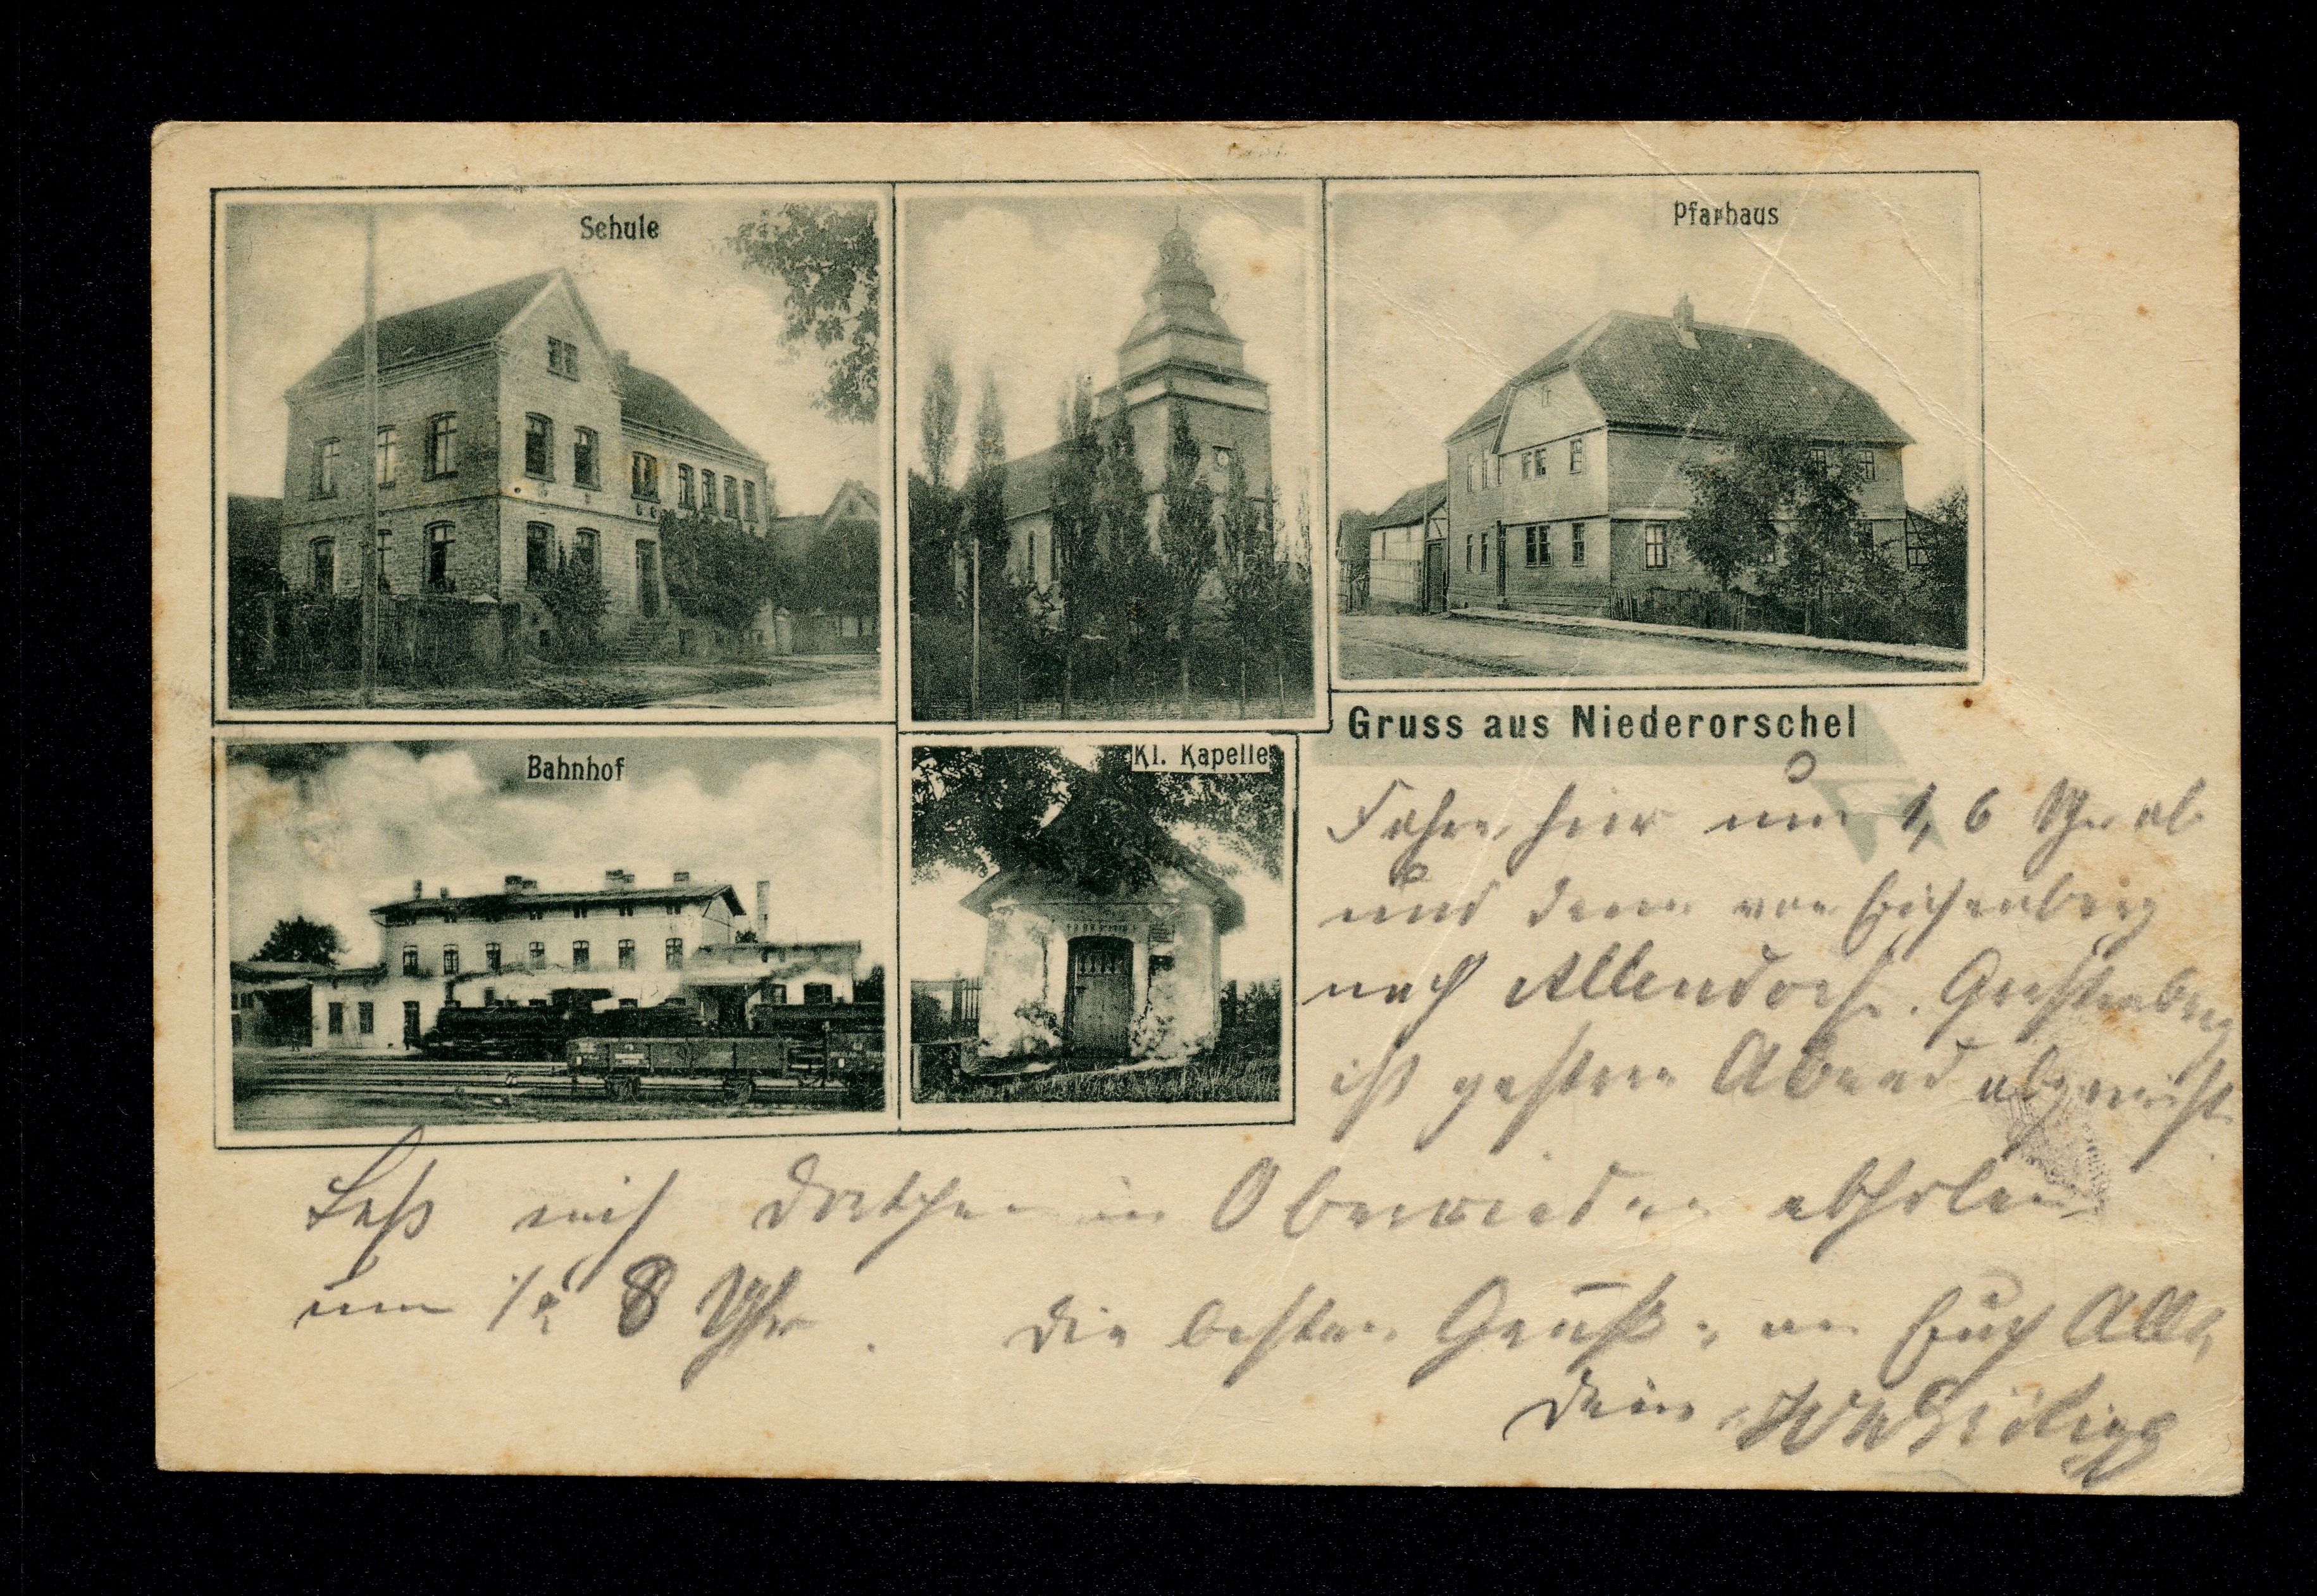 Schule
Pfarhaus
Gruss aus Niederorschel
Bahnhof
Kl. Kapelle
Fahre hier um 6 Uhr ab
und dann von Eichenberg
nach Allendorf.
ist gestern Abend abgereist.
Laß mich in Oberrieden abholen
um 1/2 8 Uhr. Die besten Grüße an Euch Alle
Dein